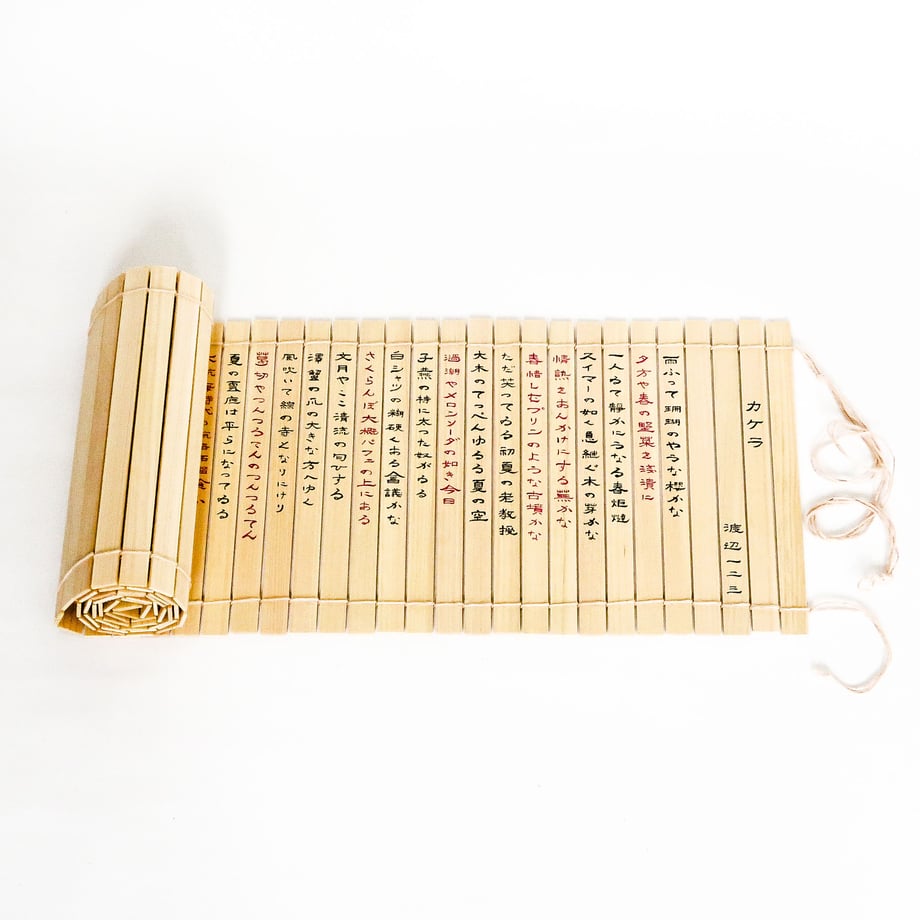 カケラ
渡辺一二三
雨ふって珊瑚のやうな櫻かな
夕方や春の野菜を浅漬に
一人ゐて靜かにうなる春炬燵
スイマーの如く息継ぐ木の芽かな
情熱をあんかけにする蕪かな
春惜しむプリンのような古墳かな
ただ笑ってゐる初夏の老教授
大木のてっぺんゆるる夏の空
過湖やメロンソーダの如き今日
子燕の特に太った奴がゐる
白シャツの糊硬くある會議かな
さくらんぼ大概パフェの上にある
文月やここ清流の匂ひする
澤蟹の爪の大きな方へゆく
風吹いて緑の寺となりにけり
葛切やつんつるてんのつんつるてん
夏の霊庭は平らになってゐる